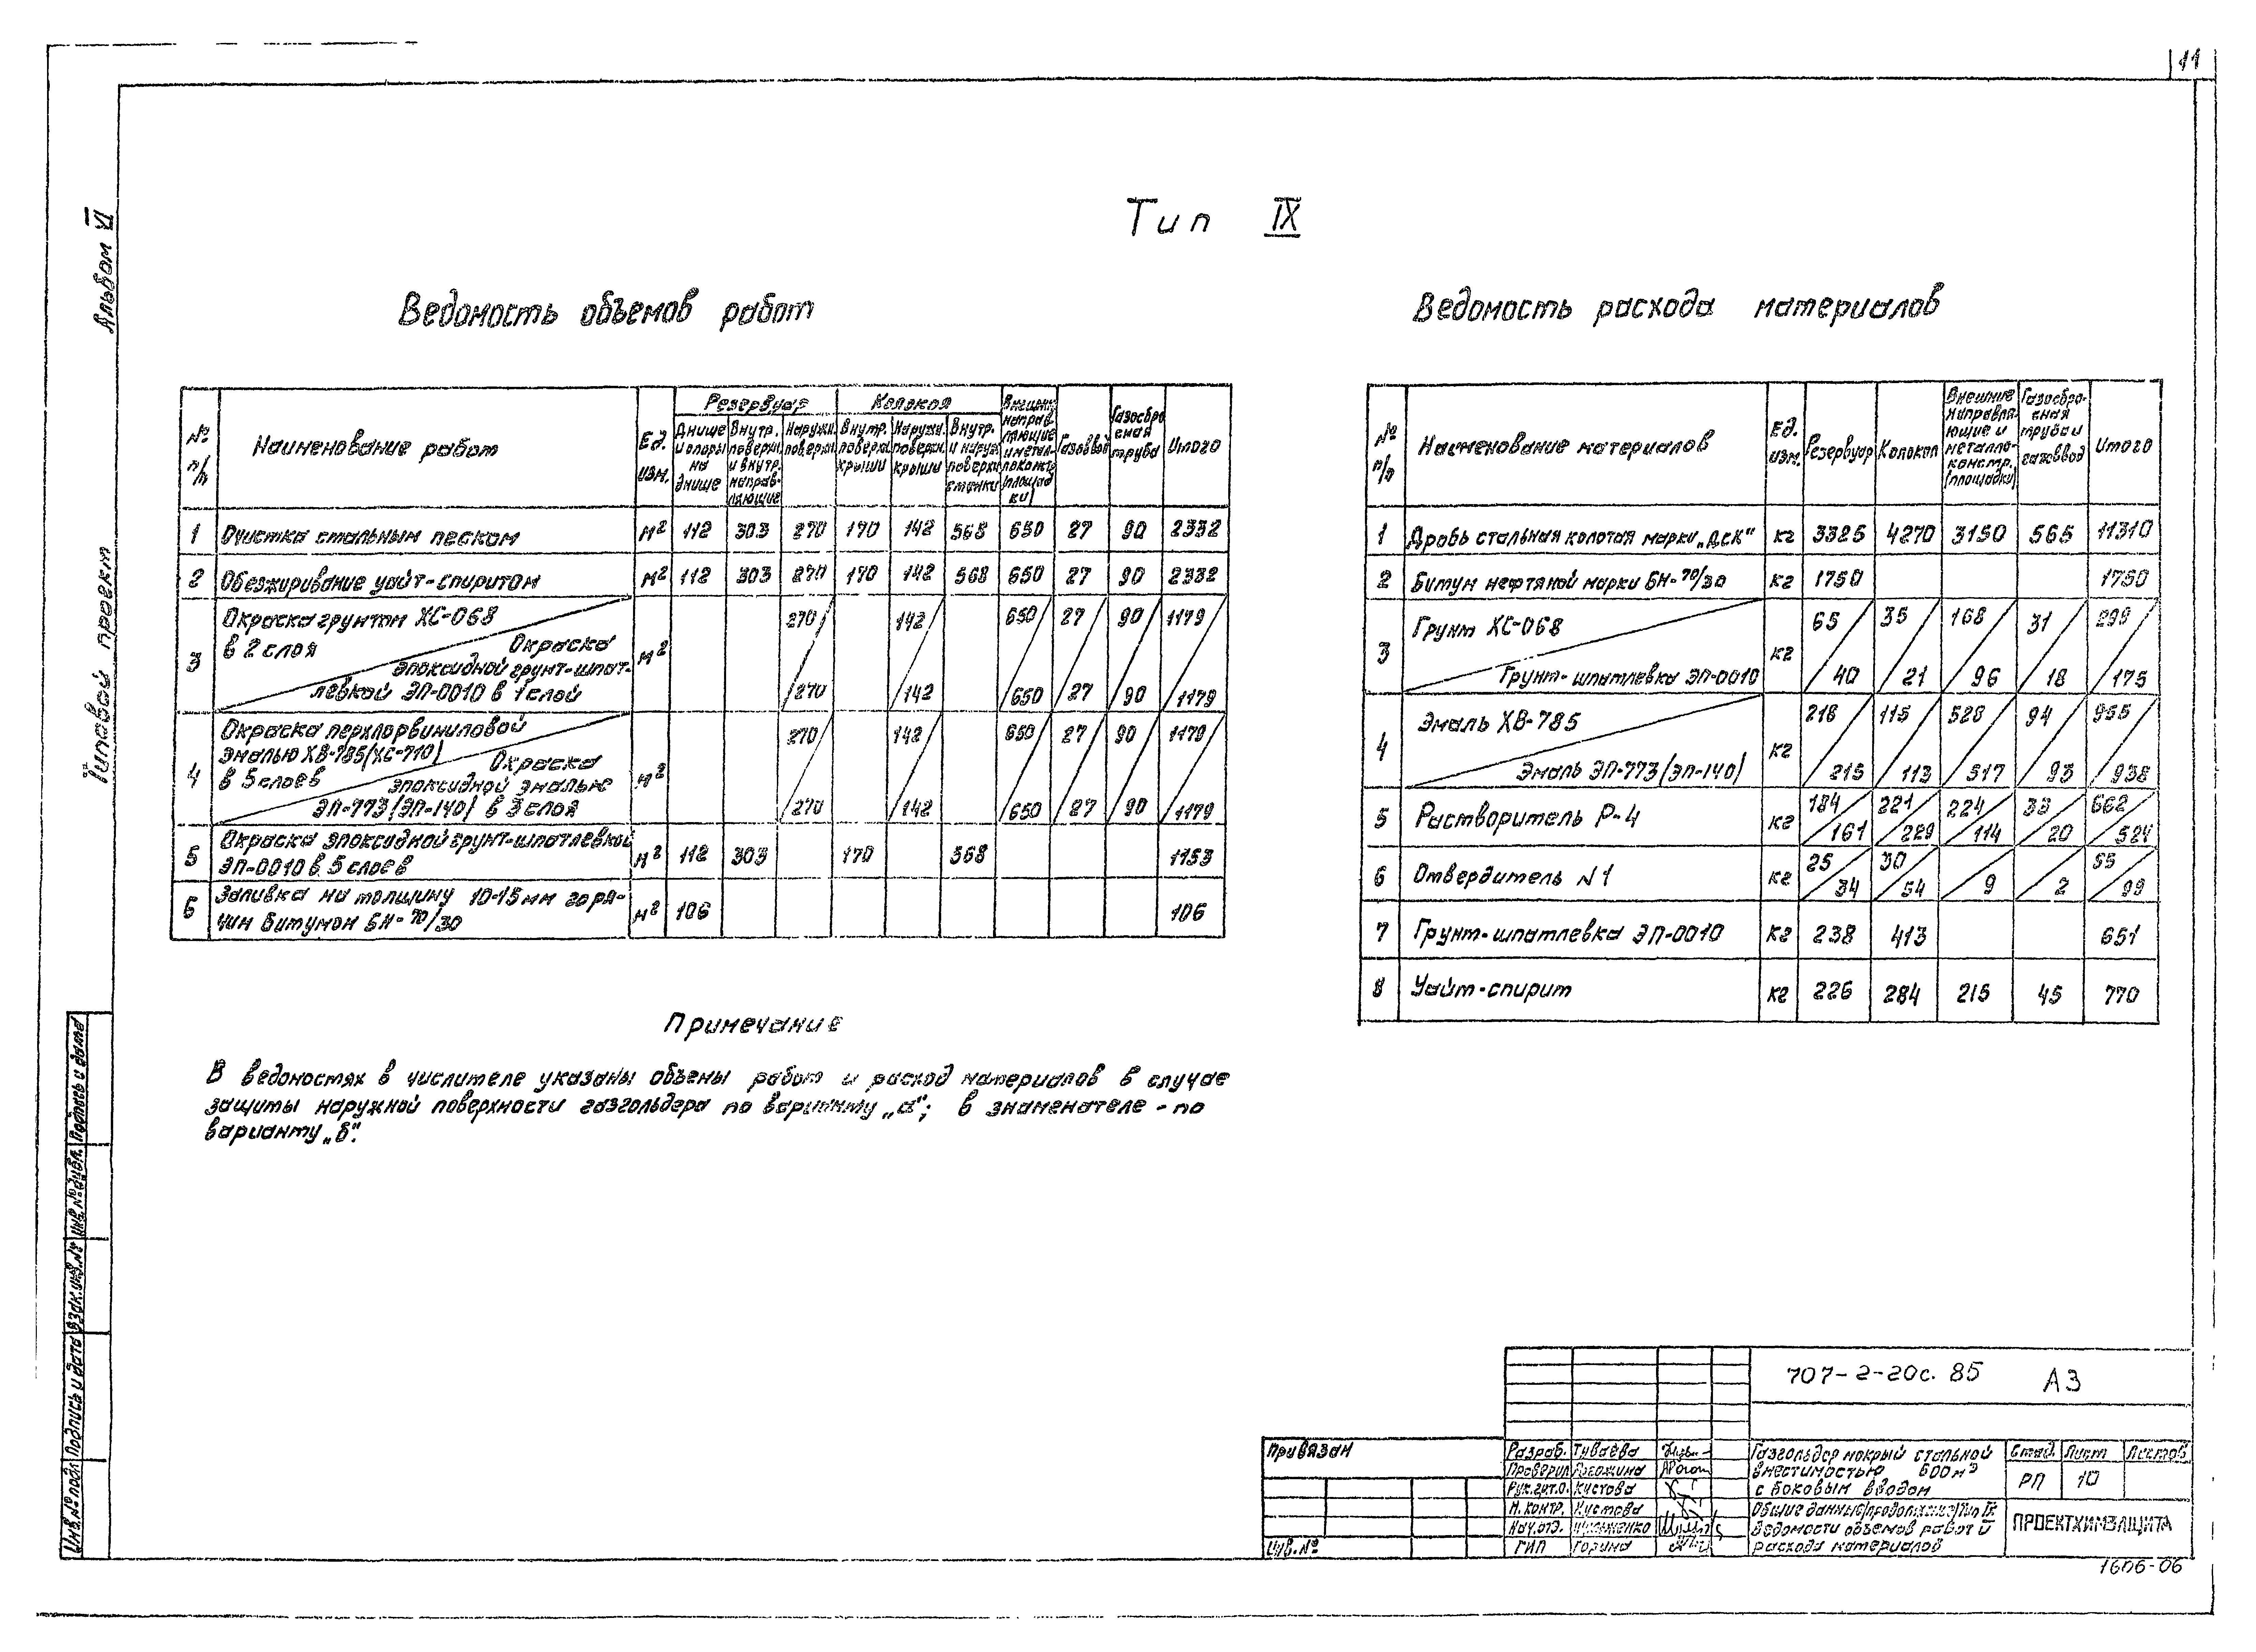 11
Альбом VI
Типовой проект
Тип IX
Ведомость объемов работ
№ п/п | Наименование работ | Ед. изм. | Резервуар | Колокол | Внешние направляющие и металлоконстр. (площадки) | Газоввод | Газосбросная труба | Итого
Днище и опоры на днище | Внутр. поверхн. и внутр. направляющие | Наружн. поверхн. | Внутр. поверхн. крыши | Наружн. поверхн. крыши | Внутр. и наруж. поверхн. стенки
1 Очистка стальным песком м² 112 303 270 170 142 568 650 27 90 2332
2 Обезжиривание уайт-спиритом м² 112 303 270 170 142 568 650 27 90 2332
3 Окраска грунтом ХС-068 в 2 слоя м² 270/ 142/ 650/ 27/ 90/ 1179/
Окраска эпоксидной грунт-шпатлевкой ЭП-0010 в 1 слой /270 /142 /650 /27 /90 /1179
4 Окраска перхлорвиниловой эмалью ХВ-785 (ХС-710) в 5 слоев м² 270/ 142/ 650/ 27/ 90/ 1179/
Окраска эпоксидной эмалью ЭП-773 (ЭП-140) в 3 слоя /270 /142 /650 /27 /90 /1179
5 Окраска эпоксидной грунт-шпатлевкой ЭП-0010 в 5 слоев м² 112 303 170 568 1153
6 Заливка на толщину 10-15 мм горячим битумом БН-70/30 м² 106 106
Примечание
В ведомостях в числителе указаны объемы работ и расход материалов в случае
защиты наружной поверхности газгольдера по варианту „а"; в знаменателе - по
варианту „б".
Ведомость расхода материалов
№ п/п | Наименование материалов | Ед. изм. | Резервуар | Колокол | Внешние направляющие и металлоконстр. (площадки) | Газосбросная труба и газоввод | Итого
1 Дробь стальная колотая марки „ДСК" кг 3325 4270 3150 565 11310
2 Битум нефтяной марки БН-70/30 кг 1750 1750
3 Грунт ХС-068 кг 65 35 168 31 299
Грунт-шпатлевка ЭП-0010 40 21 96 18 175
4 Эмаль ХВ-785 кг 218 115 528 94 955
Эмаль ЭП-773 (ЭП-140) 215 113 517 93 938
5 Растворитель Р-4 кг 184/161 221/229 224/114 33/20 662/524
6 Отвердитель N1 кг 25/34 30/54 /9 /2 55/99
7 Грунт-шпатлевка ЭП-0010 кг 238 413 651
8 Уайт-спирит кг 226 284 215 45 770
Инв.№ подл. Подпись и дата Взам.инв.№ Инв.№ дубл. Подпись и дата
707-2-20с.85 АЗ
Привязан
Инв.№
Разраб. Туваева
Проверил Рогожина
Рук.гит.о. Кустова
Н.контр. Кустова
Нач.отд.
ГИП Горина
Газгольдер мокрый стальной
вместимостью 600 м³
с боковым вводом
Стад. Лист Листов
РП 10
Общие данные (продолжение) Тип IX
Ведомости объемов работ и
расхода материалов
ПРОЕКТХИМЗАЩИТА
1606-06